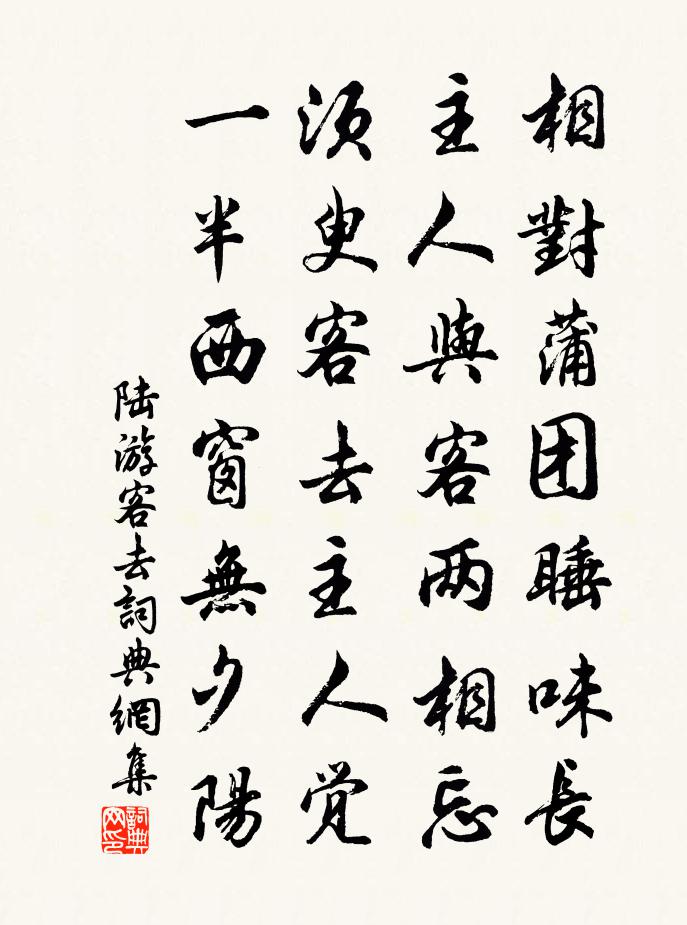 相對蒲团睡味長
主人與客两相忘
須臾客去主人觉
一半西窗無夕陽
陆游客去詞典網集
詞典网印